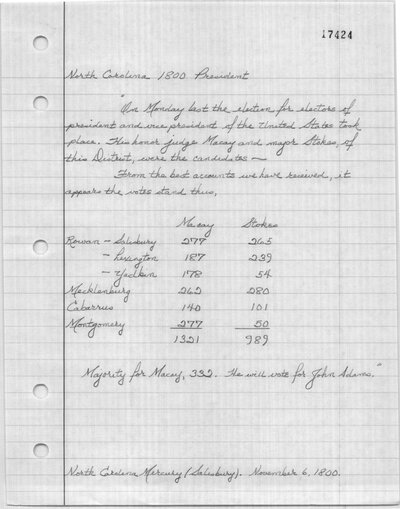 17424
North Carolina 1800 President
"On Monday last the election for electors of
president and vice president of the United States took
place. His honor judge Macay and major Stokes, of
this District, were the candidates —
From the best accounts we have received, it
appears the votes stand thus,
Macay Stokes
Rowan - Salisbury 277 265
- Lexington 187 239
- Yadkin 178 54
Mecklenburg 262 280
Cabarrus 140 101
Montgomery 277 50
1321 989
Majority for Macay, 332. He will vote for John Adams."
North Carolina Mercury (Salisbury). November 6, 1800.